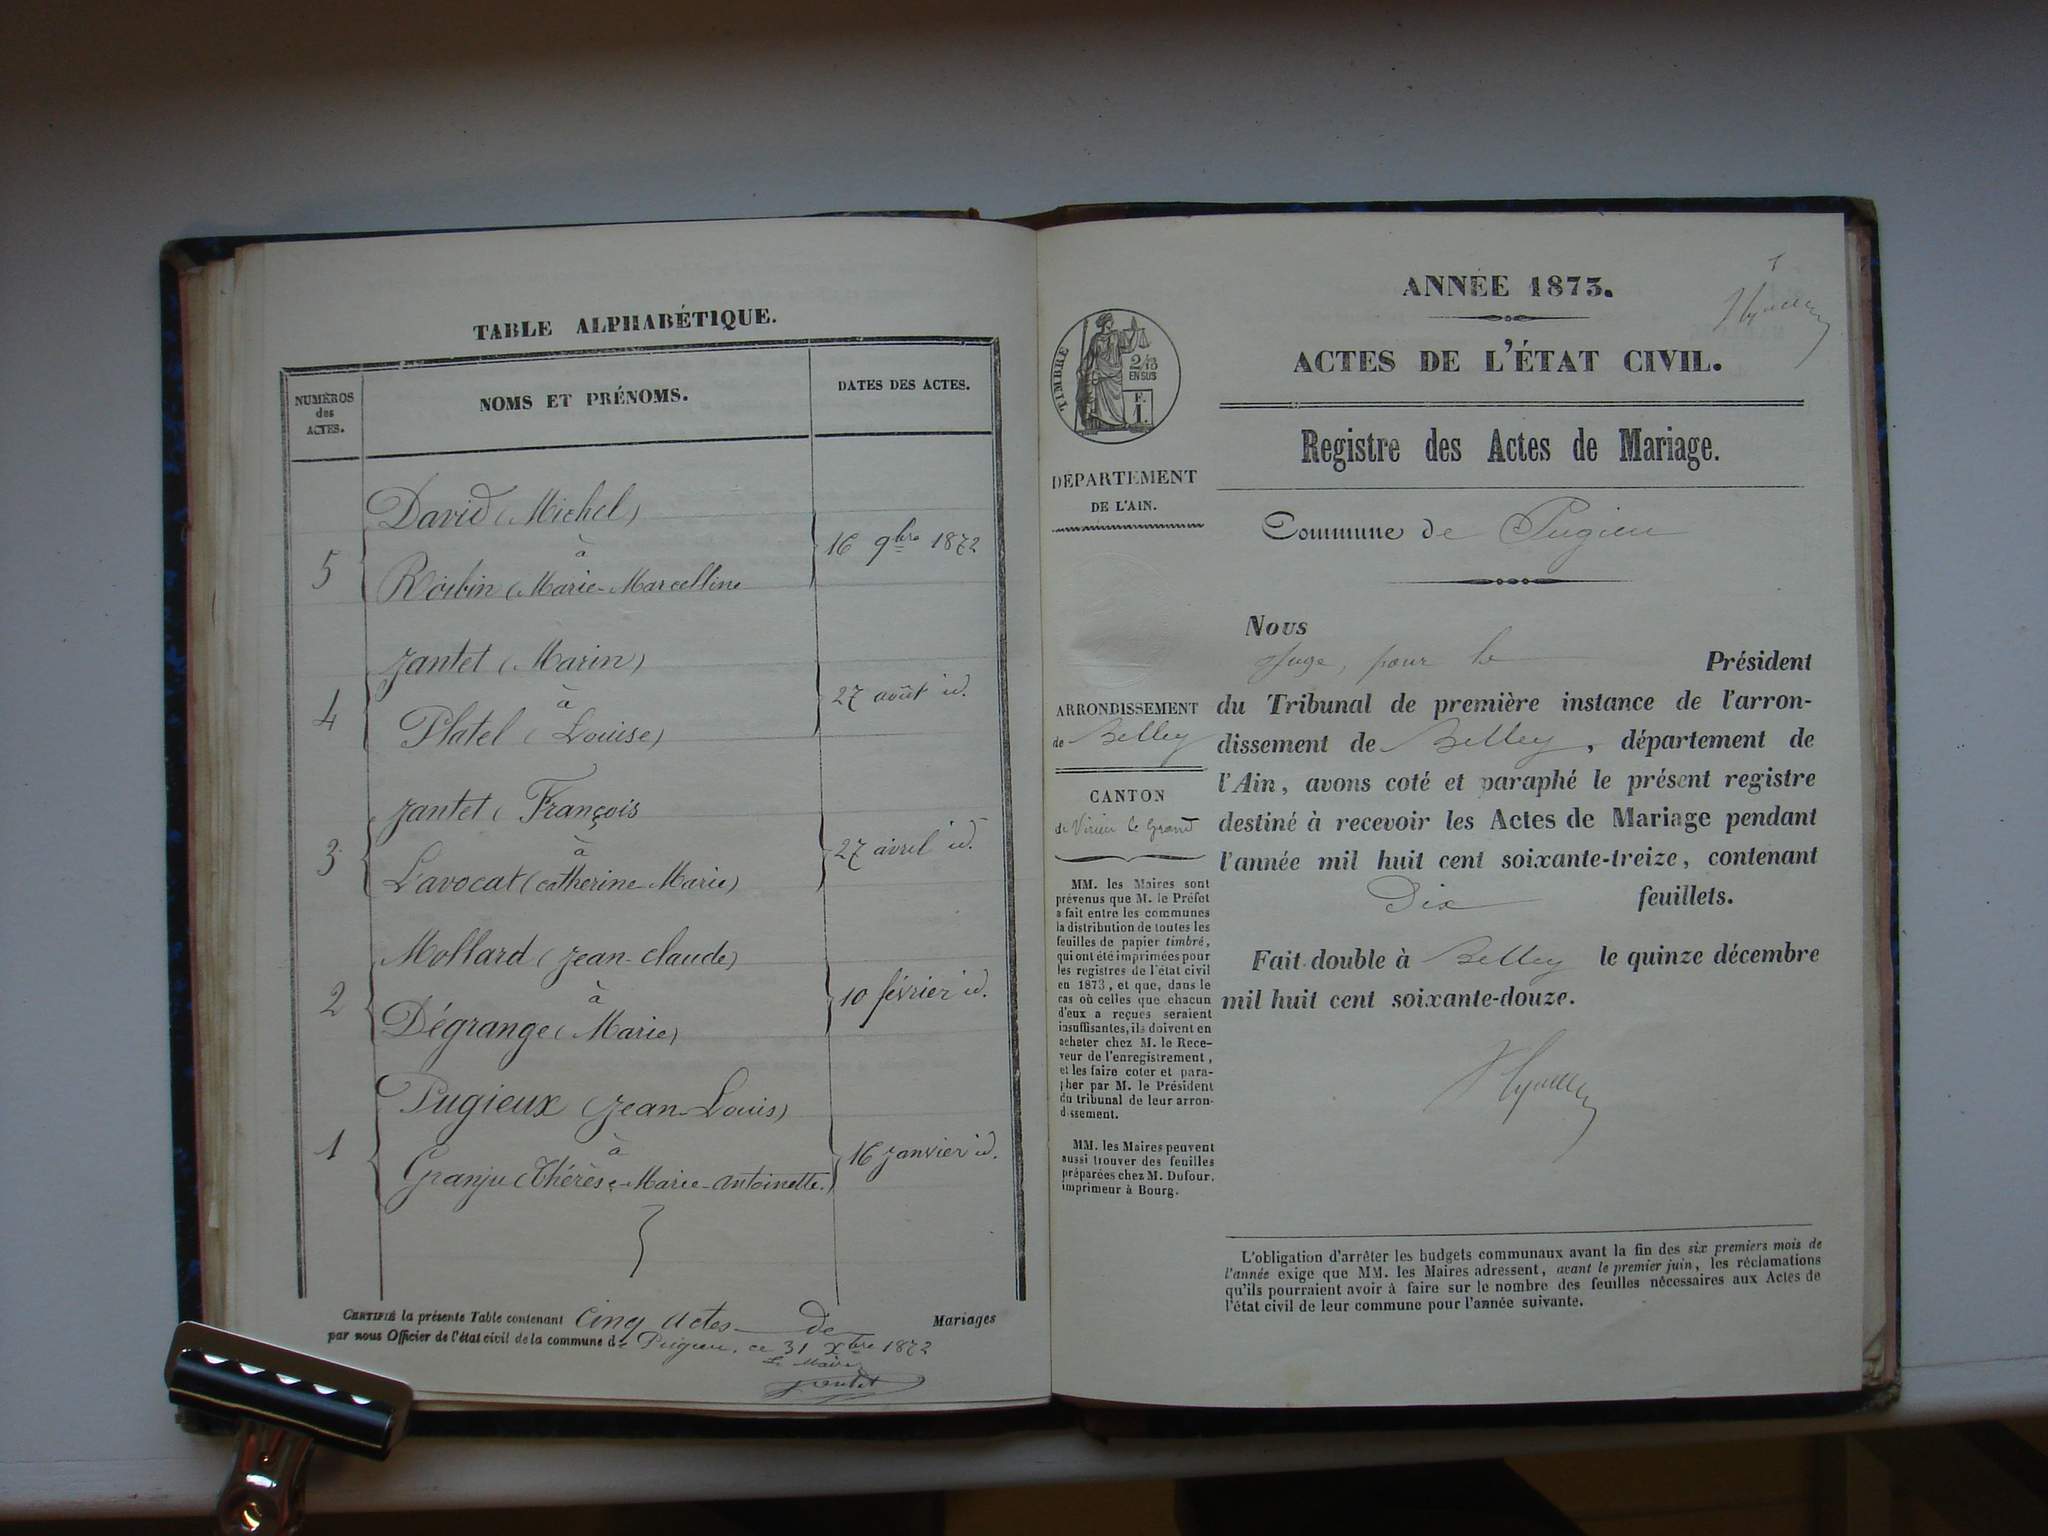 TABLE ALPHABÉTIQUE.
NUMÉROS
des
ACTES.
NOMS ET PRÉNOMS.
DATES DES ACTES.
David (Michel)
à
5
16 9bre 1872
Roibin (Marie-Marcelline
Jantet (Marin)
à
4
27 août id.
Platel (Louise)
Jantet (François
à
3
27 avril id.
Lavocat (Catherine-Marie)
Mollard (Jean-Claude)
à
2
10 février id.
Dégrange (Marie)
Pugieux (Jean-Louis)
à
1
16 janvier id.
Granju (Thérèse-Marie-Antoinette.)
CERTIFIÉ la présente Table contenant Cinq Actes de Mariages
par nous Officier de l'état civil de la commune de Pugieu, ce 31 Xbre 1872
Le Maire
Jantet
1
ANNÉE 1873.
ACTES DE L'ÉTAT CIVIL.
Registre des Actes de Mariage.
Commune de Pugieu
TIMBRE
2/10
EN SUS
F.
1.
DÉPARTEMENT
DE L'AIN.
ARRONDISSEMENT
de Belley
CANTON
de Virieu le Grand
MM. les Maires sont
prévenus que M. le Préfet
a fait entre les communes
la distribution de toutes les
feuilles de papier timbré,
qui ont été imprimées pour
les registres de l'état civil
en 1873, et que, dans le
cas où celles que chacun
d'eux a reçues seraient
insuffisantes, ils doivent en
acheter chez M. le Rece-
veur de l'enregistrement,
et les faire coter et para-
pher par M. le Président
du tribunal de leur arron-
dissement.
MM. les Maires peuvent
aussi trouver des feuilles
préparées chez M. Dufour,
imprimeur à Bourg.
Nous
Juge, pour le Président
du Tribunal de première instance de l'arron-
dissement de Belley, département de
l'Ain, avons coté et paraphé le présent registre
destiné à recevoir les Actes de Mariage pendant
l'année mil huit cent soixante-treize, contenant
Dix feuillets.
Fait double à Belley le quinze décembre
mil huit cent soixante-douze.
L'obligation d'arrêter les budgets communaux avant la fin des six premiers mois de
l'année exige que MM. les Maires adressent, avant le premier juin, les réclamations
qu'ils pourraient avoir à faire sur le nombre des feuilles nécessaires aux Actes de
l'état civil de leur commune pour l'année suivante.